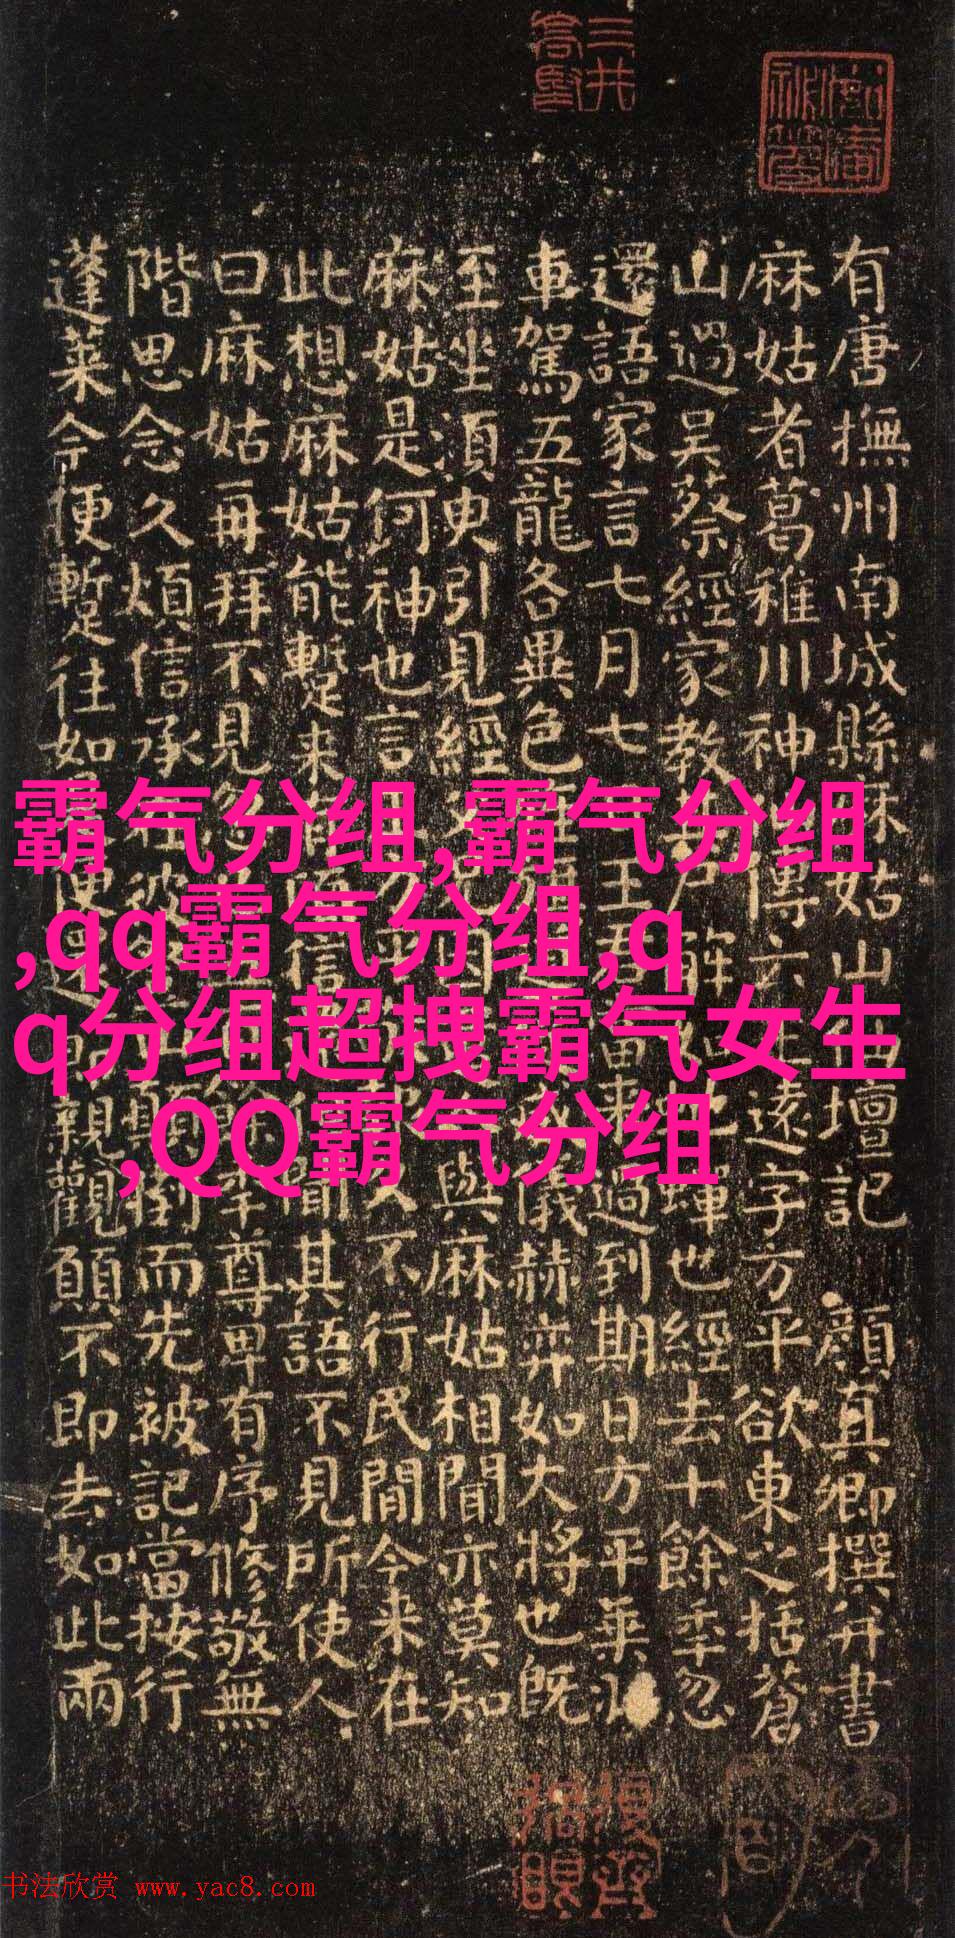 三井
高堅
有唐撫州南城縣麻姑山仙壇記 顏真卿撰并書
麻姑者葛稚川神傳云遠字方平欲東之括蒼
山過吳蔡經家教尸解蟬也經去十餘年忽
還語家言七月七王君來過到期日方平乘
車駕五龍各異色儀赫弈如大將也既
至坐須臾引見經與麻姑相聞亦莫知
麻姑是何神也言方久不行民間今來在
此想麻姑能蹔来信聞其語不見所使人
曰麻姑再拜不見年尊卑有序修敬無
階思念久煩信承在彼倒而先被記當按行
蓬萊今便蹔往如便還親觀願不即去如此兩
霸气分组,霸气分组
,qq霸气分组,q
q分组超拽霸气女生
,QQ霸气分组
书法欣赏 www.yac8.com